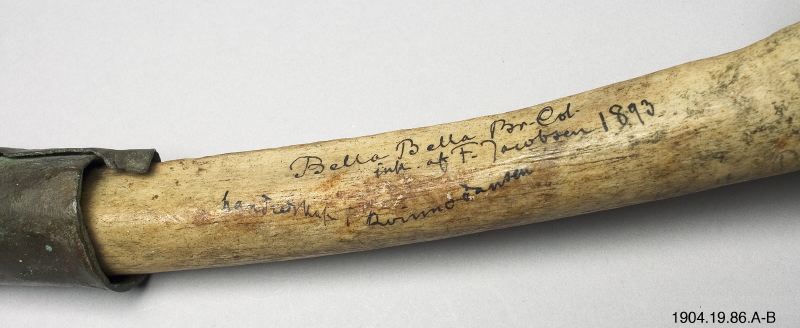 Bella Bella Br. Col.
ink. af F. Jacobsen 1893
handredskap
dansen
1904.19.86.A-B